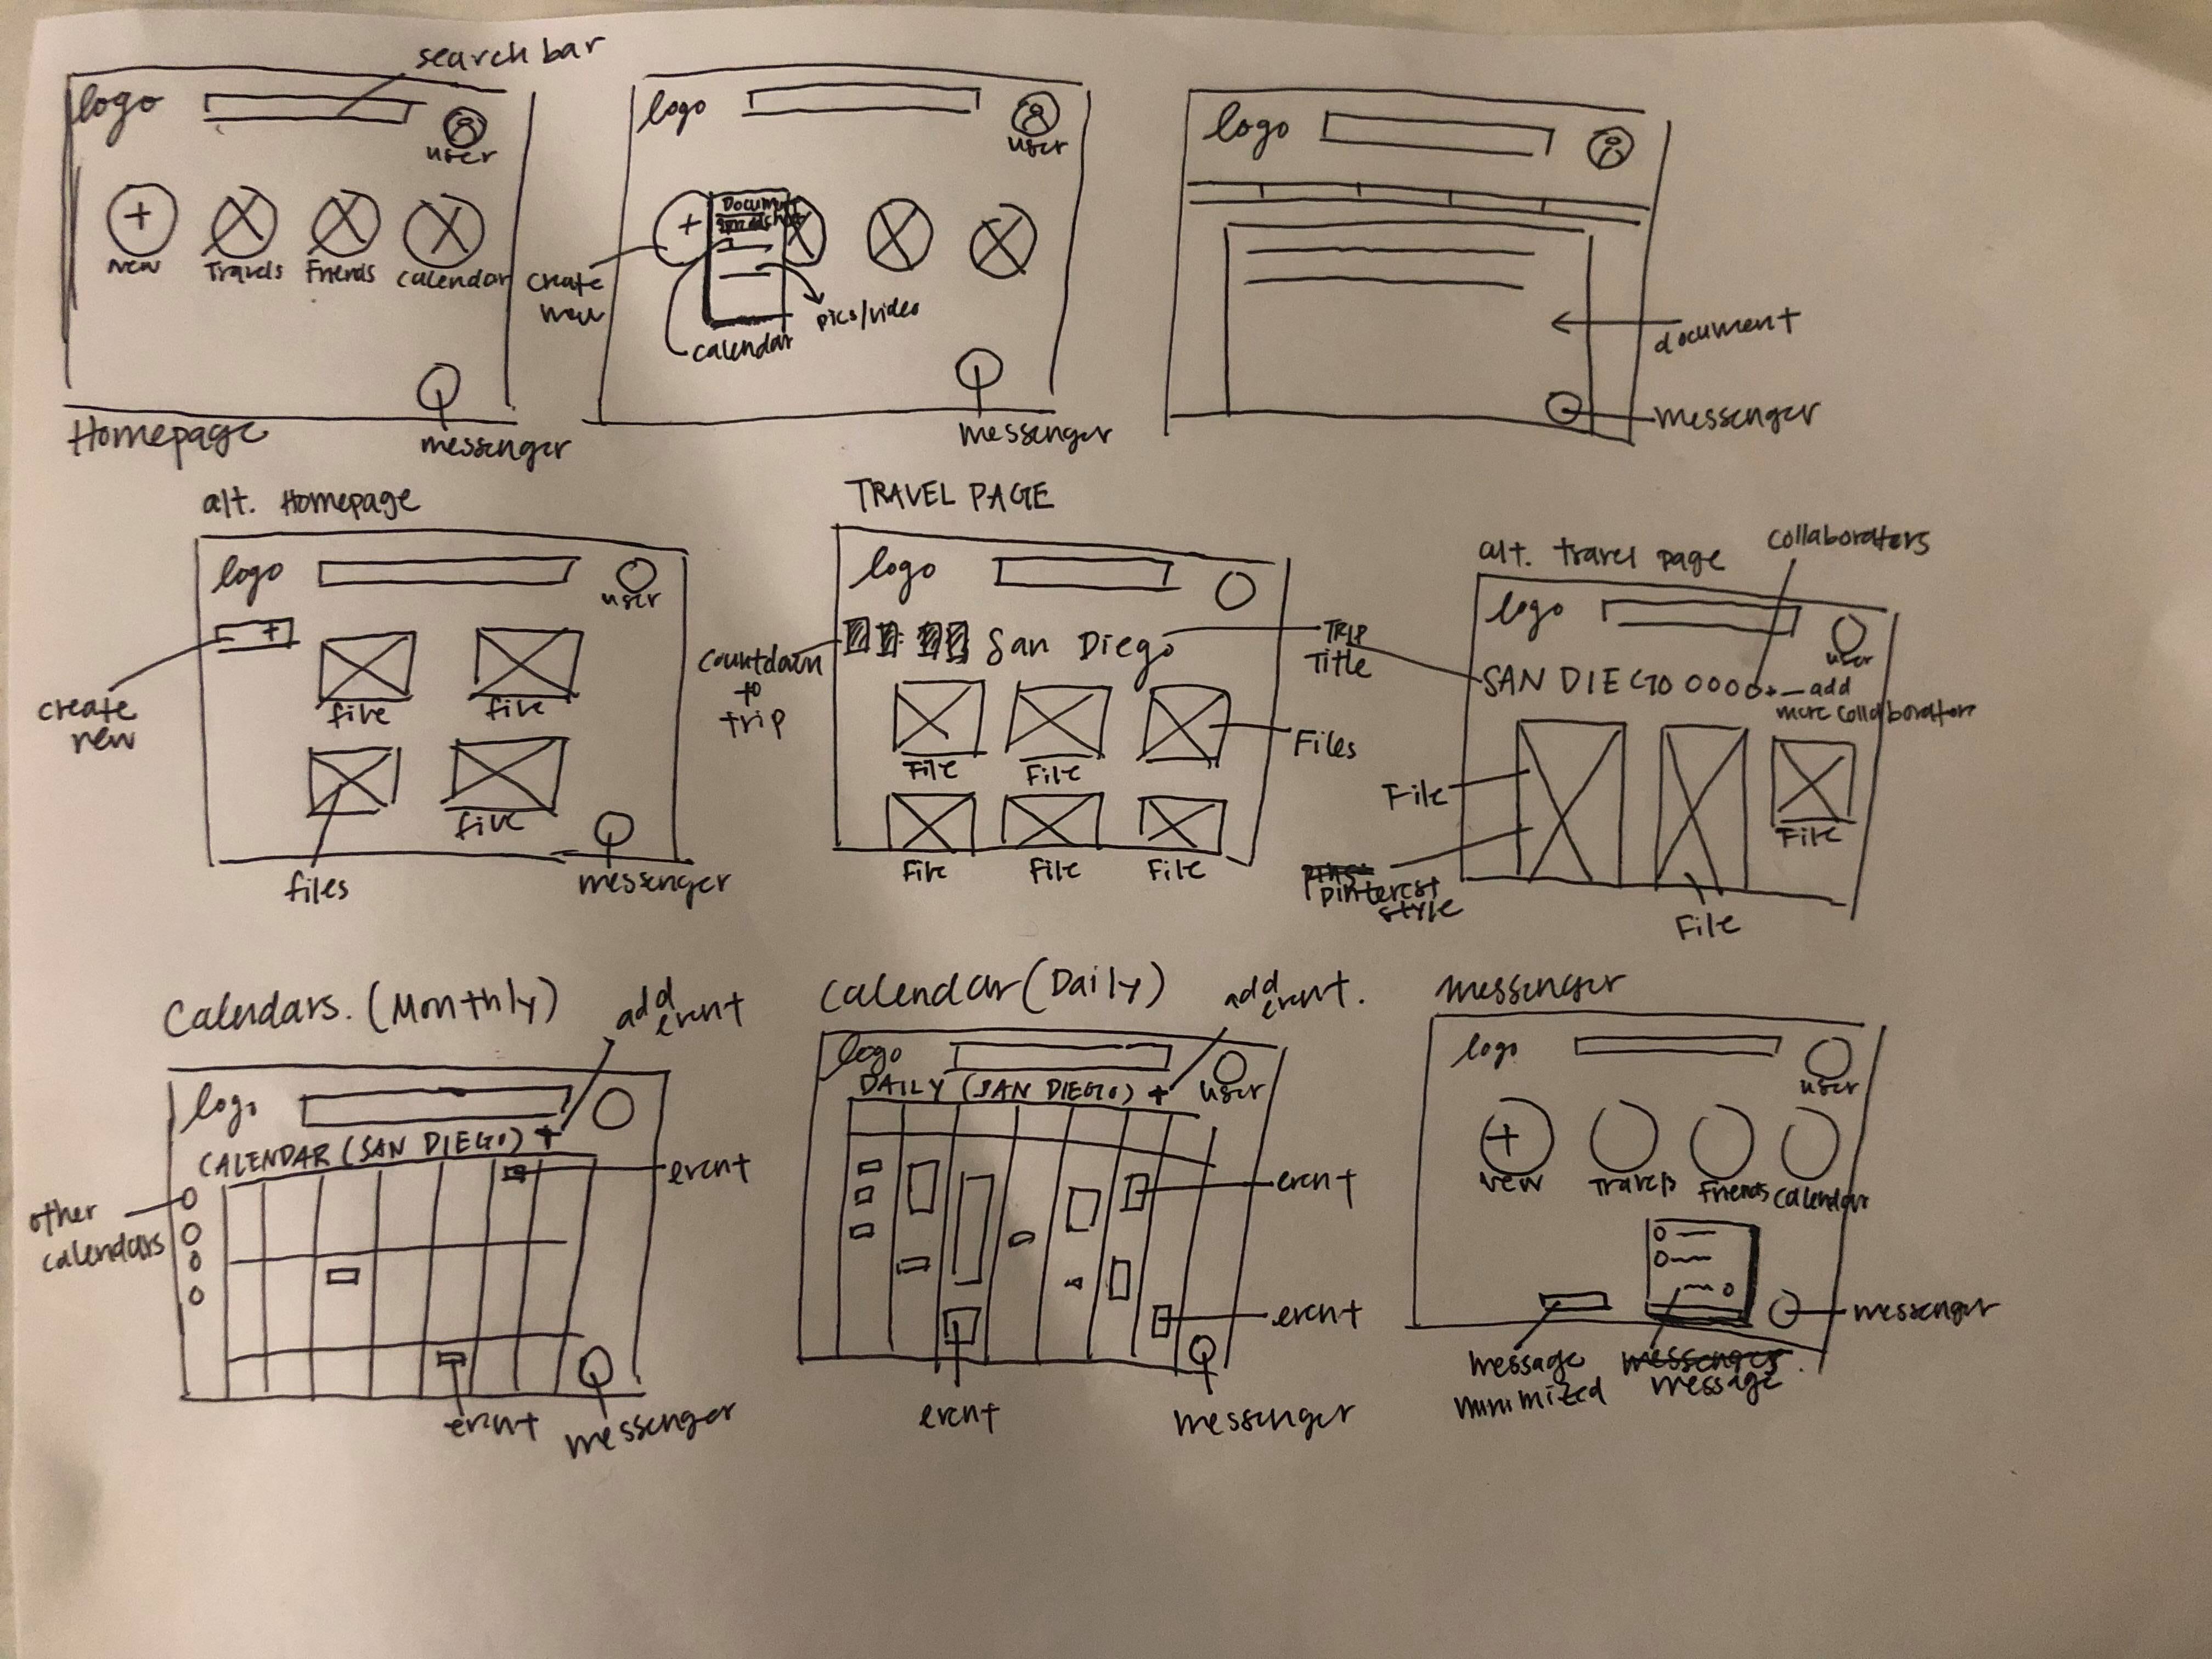 search bar
logo
user
+
New
Travels
Friends
Calendar
messenger
Homepage
logo
user
+
Document
Spreadsheet
create
new
pics/video
calendar
messenger
logo
document
messenger
alt. Homepage
logo
user
+
create
new
file
file
file
files
messenger
TRAVEL PAGE
logo
San Diego
Countdown
to
trip
TRIP
Title
File
File
Files
File
File
File
alt. travel page
collaborators
logo
user
SAN DIEGO
+
add
more collaborators
File
pinterest
style
File
File
Calendars. (Monthly)
add
event
logo
CALENDAR (SAN DIEGO) +
event
other
calendars
event
messenger
Calendar (Daily)
add
event.
logo
user
DAILY (SAN DIEGO) +
event
event
event
messenger
messenger
logo
user
+
New
Travels
Friends
Calendar
messenger
message
minimized
messenger
message